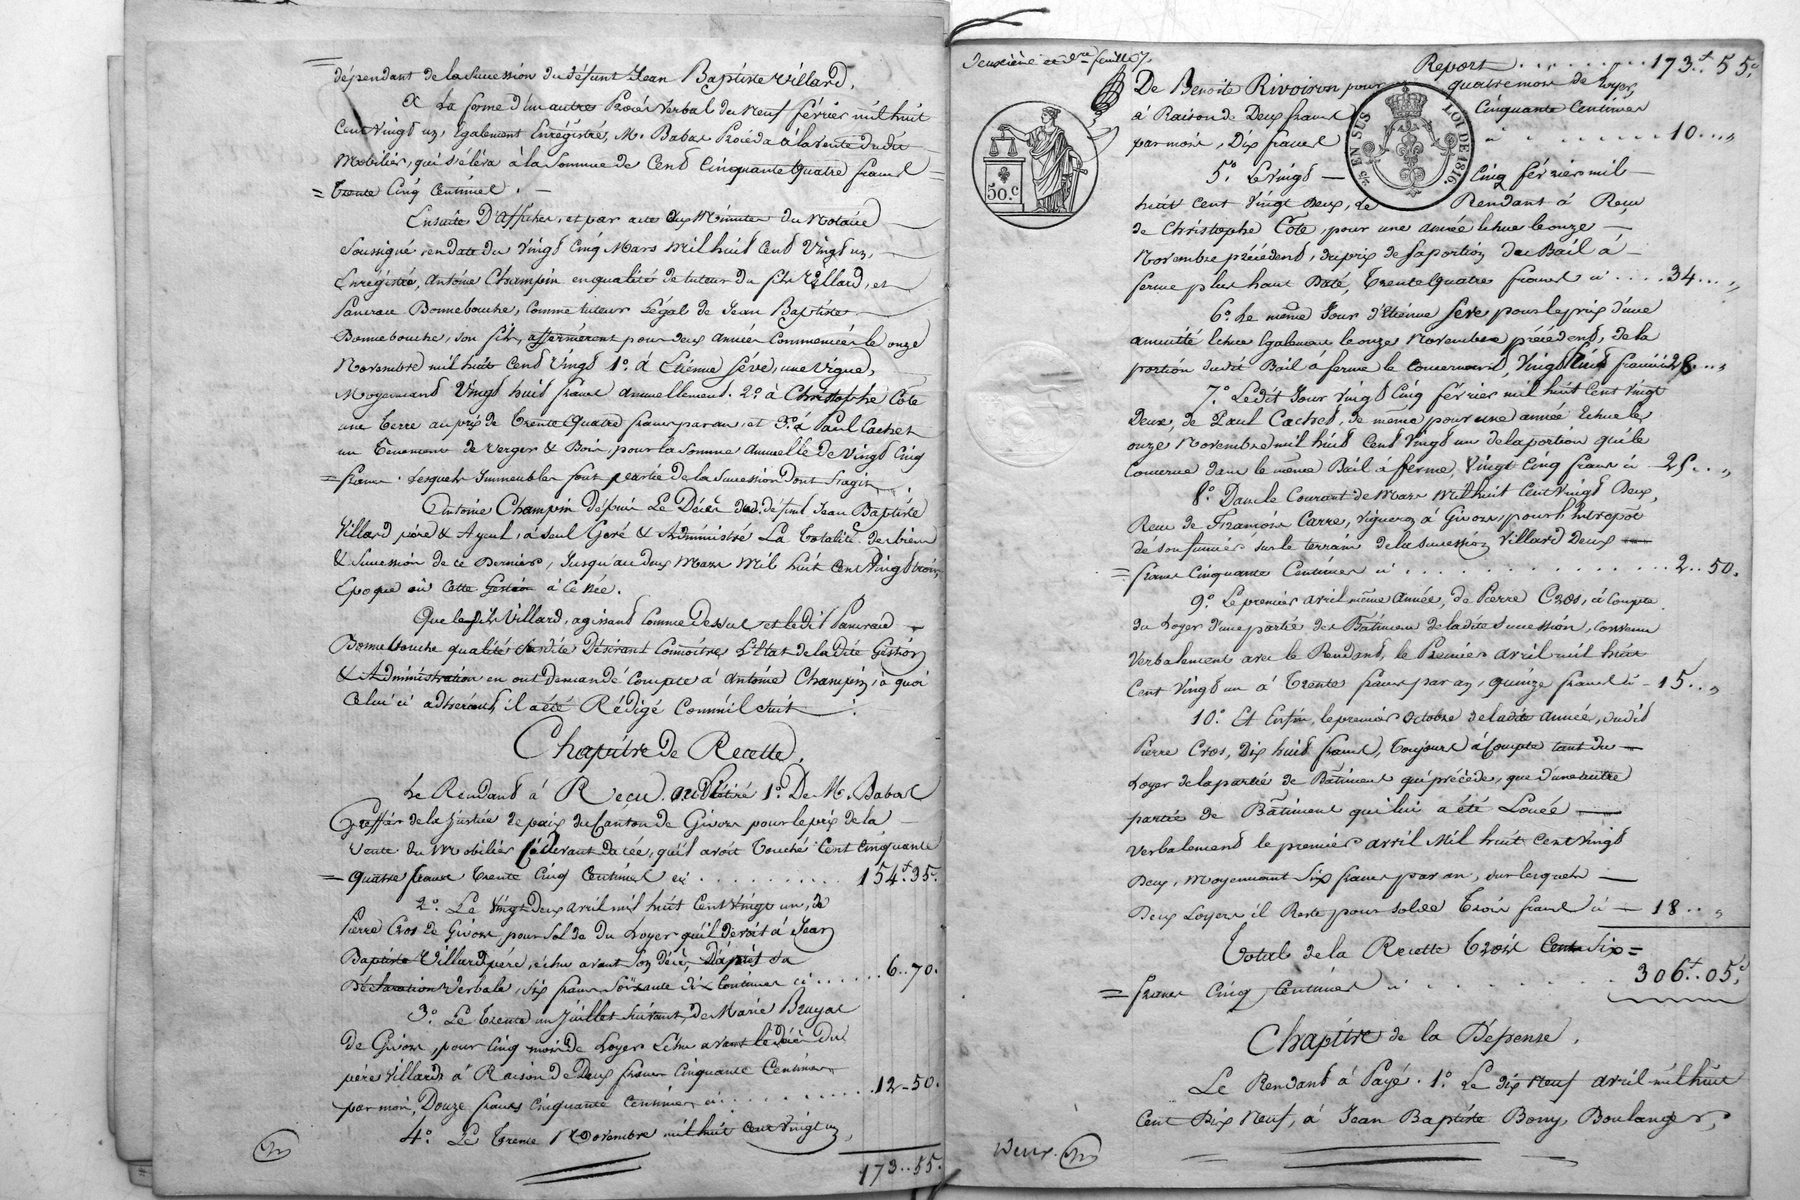 dépendant de la Succession du défunt Jean Baptiste Villard.
A la forme d'un autres Procès Verbal du Neuf février mil huit
Cent vingt un, Egalement Enrégistré, M. Babat Procéda à la Vente dudit
Mobilier, qui s'éleva à la Somme de Cent Cinquante Quatre francs
= Trente Cinq Centimes. —
Ensuite D'affiches, et par acte aux Minutes du Notaire
Soussigné, en date du Vingt Cinq Mars Mil huit Cent Vingt un,
Enrégistré, Antoine Champin en qualité de tuteur du fils Villard, et
Pancrace Bonnebouche, Comme tuteur Légal de Jean Baptiste
Bonnebouche, son fils, affermèrent pour deux Années Commencées le onze
Novembre mil huit Cent Vingt 1.º à Etienne Sève, une Vigne,
Moyennant Vingt huit francs Annuellement. 2.º à Christophe Cote
une Terre au prix de Trente Quatre francs par an et 3.º à Paul Cachet
un Tènement de Verger & Bois, pour la Somme Annuelle de Vingt Cinq
= francs. Lesquels Immeubles font partie de la Succession Dont Sagit.
Antoine Champin depuis Le Décès dud. défunt Jean Baptiste
Villard père & Ayeul, a seul Géré & Administré La Totalité des biens
& Succession de ce Dernier, Jusqu'au deux Mars Mil huit Cent Vingt trois,
Epoque où Cette Gestion a Cessée.
Que le fils Villard, agissant Comme Dessus et ledit Pancrace
Bonnebouche qualité susdite Désirant Connoître L'Etat de la dite Gestion
& Administration en ont demandé Compte à Antoine Champin, à quoi
Celui ci adhérant, il a été Rédigé Comme il Suit :
Chapitre de Recette.
Le Rendant à Reçu ou Retiré 1.º De M. Babat
Greffier de la Justice de paix du Canton de Givors pour le prix de la
Vente du Mobilier Ci devant Datée, qu'il avoit Touché Cent Cinquante
= Quatre francs Trente Cinq Centimes ci . . . . . . . . . . 154.f 35.
2.º Le Vingt Deux avril mil huit Cent Vingt un, de
Pierre Cros de Givors pour Solde du Loyer qu'il devoit à Jean
Baptiste Villard père, échu avant Son décès, D'après sa
Déclaration Verbale, six francs Soixante dix Centimes ci . . . . . 6..70.
3.º Le Trente un Juillet Suivant, de Marie Bruyat
de Givors, pour Cinq mois de Loyer Echu avant le décès du
père Villard, à Raison de Deux francs Cinquante Centimes
par mois, Douze francs Cinquante Centimes ci . . . . . . . . . . 12-50.
4.º Le Trente Novembre mil huit Cent Vingt un,
173..55.
deuxième et d.re feuille
Report . . . . . . . . 173.f 55.c
De Benoite Rivoiron pour quatre mois de Loyer,
à Raison de Deux francs Cinquante Centimes
par mois, Dix francs ci . . . . . . . . 10...„
50.c
EN SUS
LOI DE 1816.
5.º Le Vingt — Cinq février mil
huit Cent Vingt Deux, Le Rendant à Reçu
de Christophe Cote, pour une année échue le onze
Novembre précédent, du prix de Sa portion du Bail à
ferme plus haut Daté, Trente Quatre francs ci . . . . 34...„
6.º Le même Jour d'Etienne Sève pour le prix d'une
annuité Echue Egalement le onze Novembre précédent, de la
portion dudit Bail à ferme le Concernant, Vingt huit francs ci 28...„
7.º Ledit Jour Vingt Cinq février mil huit Cent Vingt
Deux, de Paul Cachet, de même pour une année Echue le
onze Novembre mil huit Cent Vingt un de la portion qui le
Concerne dans le même Bail à ferme, Vingt Cinq francs ci - 25...„
8.º Dans le Courant de Mars Mil huit Cent Vingt Deux,
Reçu de François Carre, Vigneron à Givors pour l'Intrepôt
de son fumier sur le terrain de la Succession Villard Deux
= francs Cinquante Centimes ci . . . . . . . . . . . . 2..50.
9.º Le premier avril même Année, de Pierre Cros, à Compte
du Loyer d'une partie des Bâtimens de ladite Succession, Convenu
Verbalement avec le Rendant, le Premier avril mil huit
Cent Vingt un à Trente francs par an, quinze francs ci - 15..„
10.º Et Enfin, le premier octobre de ladite année, dudit
Pierre Cros, Dix huit francs, Toujours à Compte tant du
Loyer de la partie de Bâtiment qui précède, que d'une autre
partie de Bâtiment qui lui a été Louée
Verbalement le premier avril Mil huit Cent Vingt
Deux, Moyennant Six francs par an, sur lesquels
Deux Loyers il Reste pour Solde Trois francs ci — 18..„
Total de la Recette Trois Cents Six =
= francs Cinq Centimes ci . . . . . . . 306.f 05.c
Chapitre de la Dépense.
Le Rendant à Payé. 1.º Le dix Neuf avril mil huit
Cent Dix Neuf, à Jean Baptiste Bony, Boulanger,
Deux.